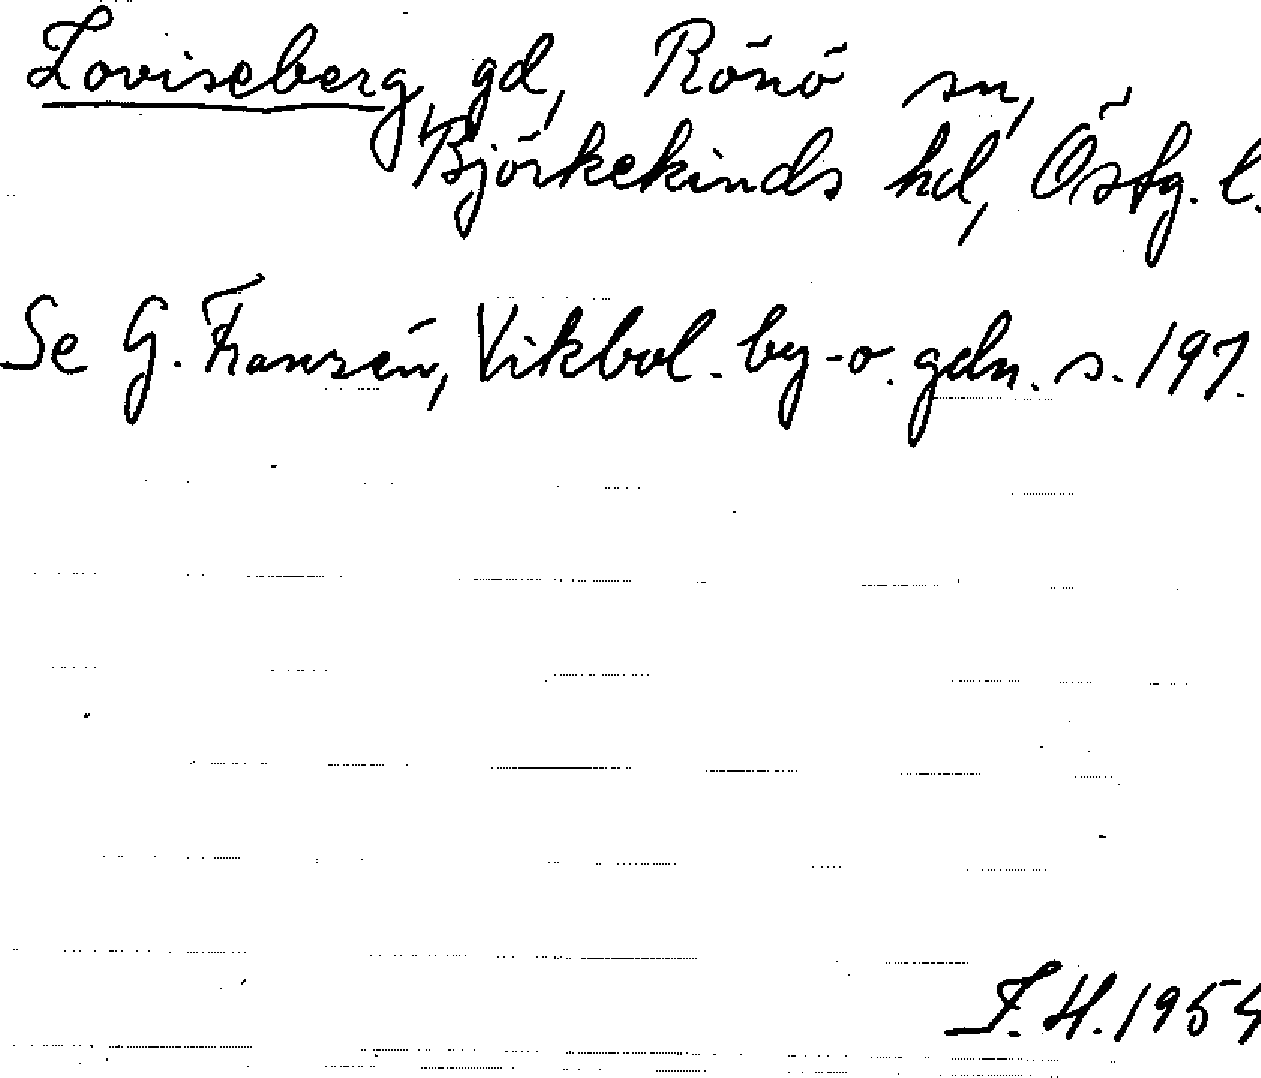 Loviseberg, gd, Rönö sn,
Björkekinds hd, Östg. l.
Se G. Franzén, Vikbol. by- o. gdn. s. 197.
F. H. 1954